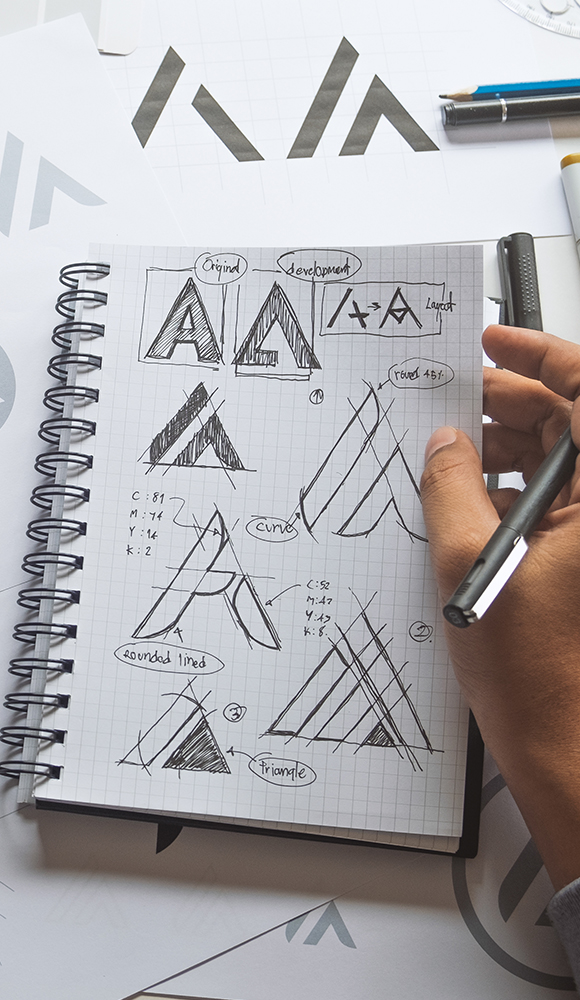 Original
development
Layout
A
round 45%
①
C : 81
M : 74
Y : 14
K : 2
curve
C : 52
M : 47
Y : 47
K : 8.
②
Rounded lined
③
Triangle